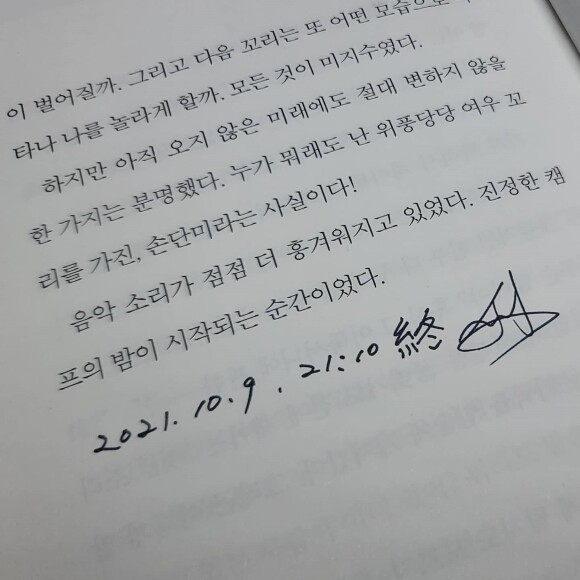 이 벌어질까. 그리고 다음 꼬리는 또 어떤 모습으로
타나 나를 놀라게 할까. 모든 것이 미지수였다.
하지만 아직 오지 않은 미래에도 절대 변하지 않을
한 가지는 분명했다. 누가 뭐래도 난 위풍당당 여우 꼬
리를 가진, 손단미라는 사실이다!
음악 소리가 점점 더 흥겨워지고 있었다. 진정한 캠
프의 밤이 시작되는 순간이었다.
2021. 10. 9. 21:10 終